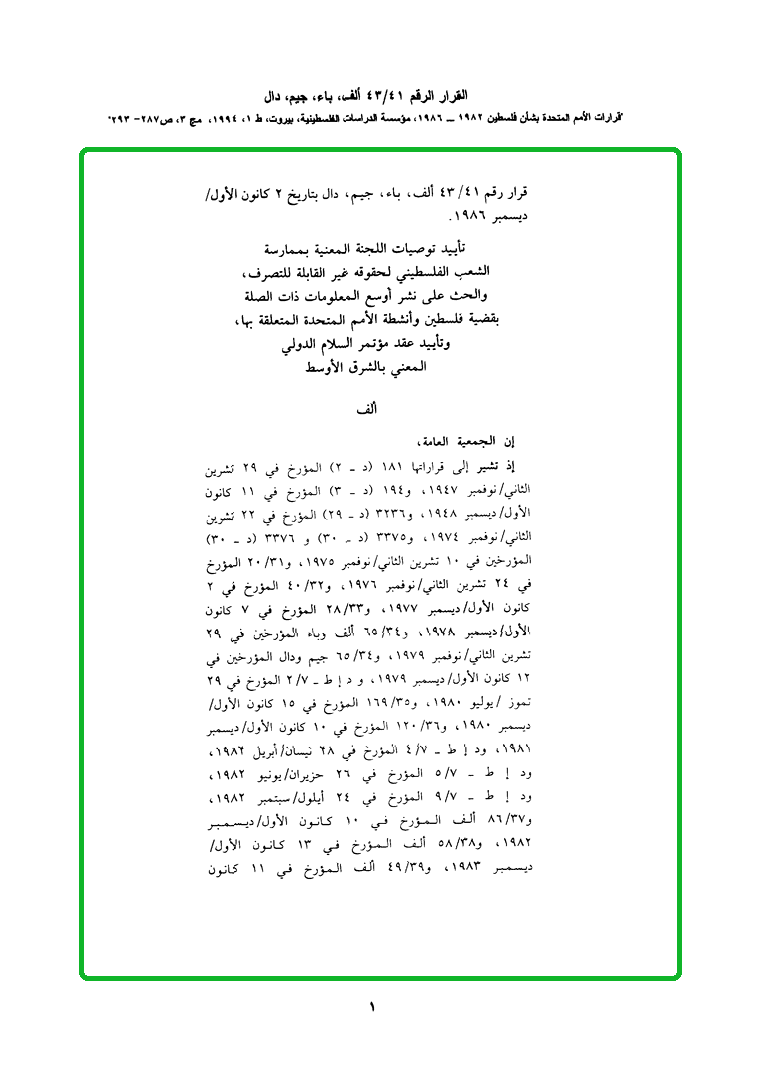 القرار الرقم ٤٣/٤١ ألف، باء، جيم، دال
"قرارات الأمم المتحدة بشأن فلسطين ١٩٨٢ ــ ١٩٨٦، مؤسسة الدراسات الفلسطينية، بيروت، ط ١، ١٩٩٤، مج ٣، ص٢٨٧- ٢٩٣"
قرار رقم ٤٣/٤١ ألف، باء، جيم، دال بتاريخ ٢ كانون الأول/
ديسمبر ١٩٨٦.
تأييد توصيات اللجنة المعنية بممارسة
الشعب الفلسطيني لحقوقه غير القابلة للتصرف،
والحث على نشر أوسع المعلومات ذات الصلة
بقضية فلسطين وأنشطة الأمم المتحدة المتعلقة بها،
وتأييد عقد مؤتمر السلام الدولي
المعني بالشرق الأوسط
ألف
إن الجمعية العامة،
إذ تشير إلى قراراتها ١٨١ (د ـ ٢) المؤرخ في ٢٩ تشرين
الثاني/نوفمبر ١٩٤٧، و١٩٤ (د ـ ٣) المؤرخ في ١١ كانون
الأول/ديسمبر ١٩٤٨، و٣٢٣٦ (د ـ ٢٩) المؤرخ في ٢٢ تشرين
الثاني/نوفمبر ١٩٧٤، و٣٣٧٥ (د ـ ٣٠) و ٣٣٧٦ (د ـ ٣٠)
المؤرخين في ١٠ تشرين الثاني/نوفمبر ١٩٧٥، و٢٠/٣١ المؤرخ
في ٢٤ تشرين الثاني/نوفمبر ١٩٧٦، و٤٠/٣٢ المؤرخ في ٢
كانون الأول/ديسمبر ١٩٧٧، و٢٨/٣٣ المؤرخ في ٧ كانون
الأول/ديسمبر ١٩٧٨، و٦٥/٣٤ ألف وباء المؤرخين في ٢٩
تشرين الثاني/نوفمبر ١٩٧٩، و٦٥/٣٤ جيم ودال المؤرخين في
١٢ كانون الأول/ديسمبر ١٩٧٩، و د إ ط ـ ٢/٧ المؤرخ في ٢٩
تموز /يوليو ١٩٨٠، و١٦٩/٣٥ المؤرخ في ١٥ كانون الأول/
ديسمبر ١٩٨٠، و١٢٠/٣٦ المؤرخ في ١٠ كانون الأول/ديسمبر
١٩٨١، ود إ ط ـ ٤/٧ المؤرخ في ٢٨ نيسان/أبريل ١٩٨٢،
ود إ ط ـ ٥/٧ المؤرخ في ٢٦ حزيران/يونيو ١٩٨٢،
ود إ ط ـ ٩/٧ المؤرخ في ٢٤ أيلول/سبتمبر ١٩٨٢،
و٨٦/٣٧ ألف المؤرخ في ١٠ كانون الأول/ديسمبر
١٩٨٢، و٥٨/٣٨ ألف المؤرخ في ١٣ كانون الأول/
ديسمبر ١٩٨٣، و٤٩/٣٩ ألف المؤرخ في ١١ كانون
١